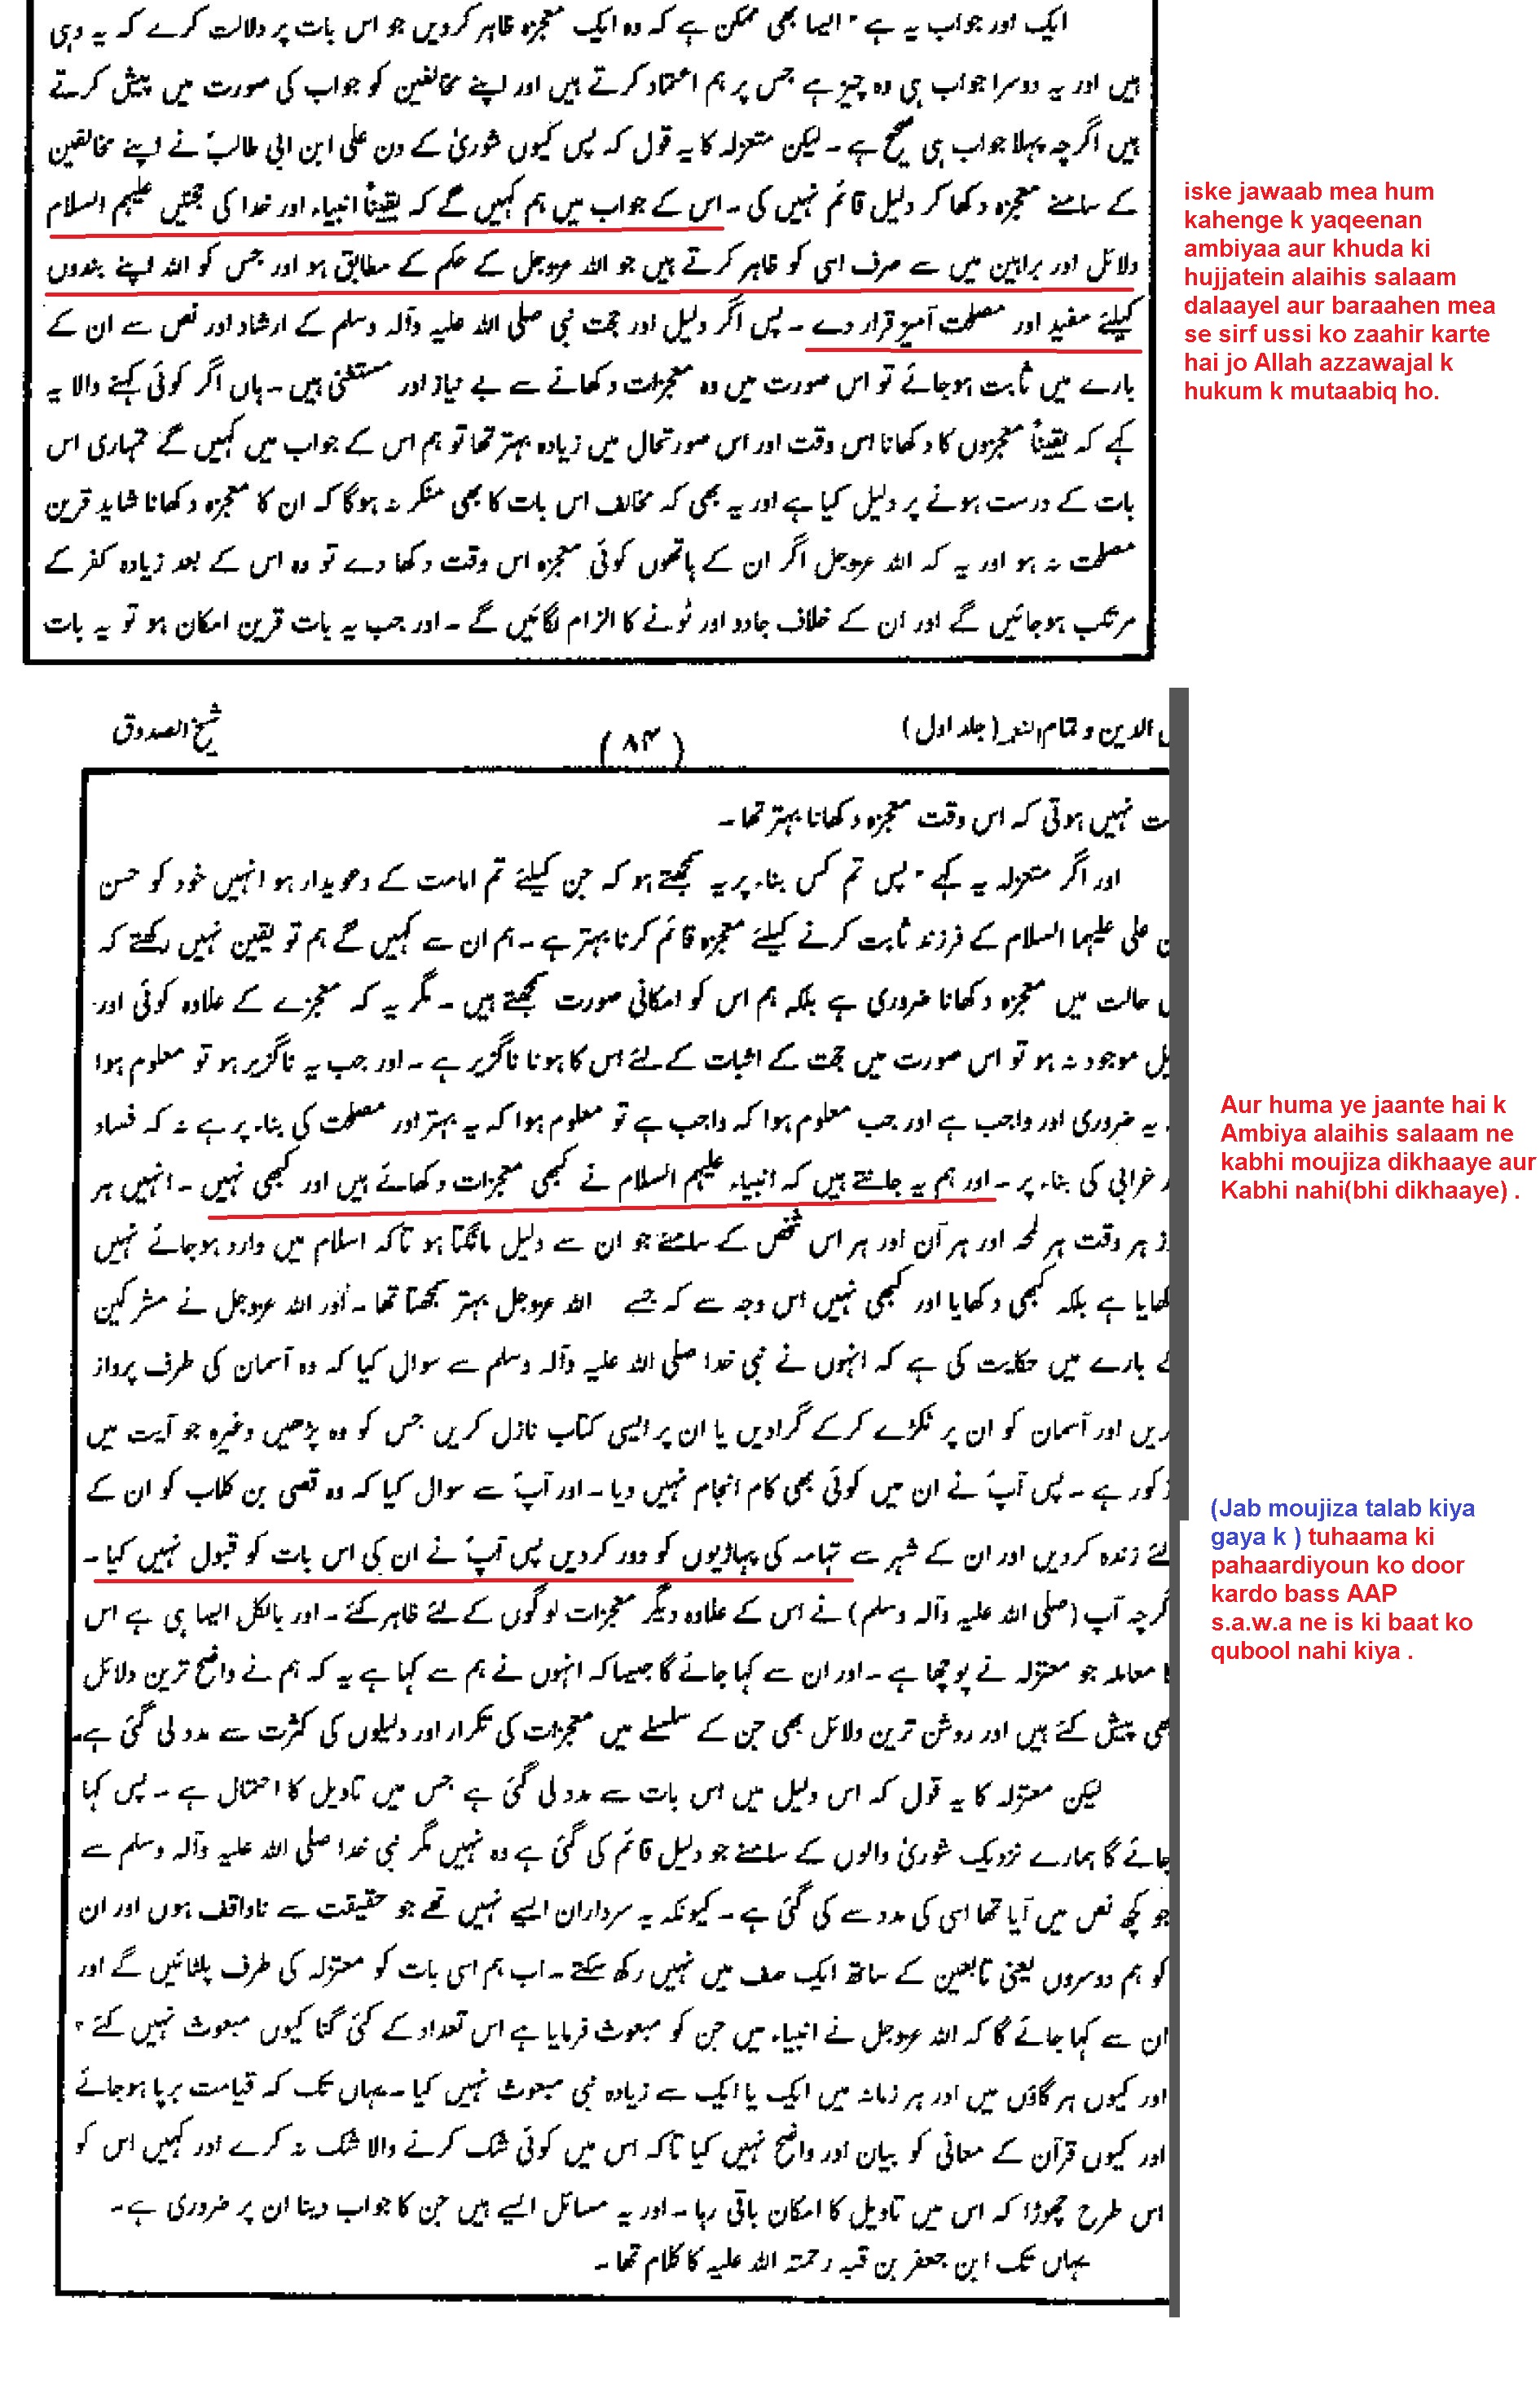 ایک اور جواب یہ ہے " ایسا بھی ممکن ہے کہ وہ ایک معجزہ ظاہر کردیں جو اس بات پر دلالت کرے کہ یہ وہی
ہیں اور یہ دوسرا جواب ہی وہ چیز ہے جس پر ہم اعتماد کرتے ہیں اور اپنے مخالفین کو جواب کی صورت میں پیش کرتے
ہیں اگرچہ پہلا جواب ہی صحیح ہے ۔ لیکن معتزلہ کا یہ قول کہ پس کیوں شوریٰ کے دن علی ابن ابی طالبؑ نے اپنے مخالفین
کے سامنے معجزہ دکھا کر دلیل قائم نہیں کی ۔ اس کے جواب میں ہم کہیں گے کہ یقیناً انبیاء اور خدا کی حجتیں علیہم السلام
دلائل اور براہین میں سے صرف اسی کو ظاہر کرتے ہیں جو اللہ عزوجل کے حکم کے مطابق ہو اور جس کو اللہ اپنے بندوں
کیلئے مفید اور مصلحت آمیز قرار دے ۔ پس اگر دلیل اور حجت نبی صلی اللہ علیہ وآلہ وسلم کے ارشاد اور نص سے ان کے
بارے میں ثابت ہوجائے تو اس صورت میں وہ معجزات دکھانے سے بے نیاز اور مستغنیٰ ہیں ۔ ہاں اگر کوئی کہنے والا یہ
کہے کہ یقیناً معجزوں کا دکھانا اس وقت اور اس صورتحال میں زیادہ بہتر تھا تو ہم اس کے جواب میں کہیں گے تمہاری اس
بات کے درست ہونے پر دلیل کیا ہے اور یہ بھی کہ مخالف اس بات کا بھی منکر نہ ہوگا کہ ان کا معجزہ دکھانا شاید قرین
مصلحت نہ ہو اور یہ کہ اللہ عزوجل اگر ان کے ہاتھوں کوئی معجزہ اس وقت دکھا دے تو وہ اس کے بعد زیادہ کفر کے
مرتکب ہوجائیں گے اور ان کے خلاف جادو اور ٹونے کا الزام لگائیں گے ۔ اور جب یہ بات قرین امکان ہو تو یہ بات
iske jawaab mea hum
kahenge k yaqeenan
ambiyaa aur khuda ki
hujjatein alaihis salaam
dalaayel aur baraahen mea
se sirf ussi ko zaahir karte
hai jo Allah azzawajal k
hukum k mutaabiq ho.
الدین و تمام النعمہ (جلد اول)
(۸۴)
شیخ الصدوق
نہیں ہوتی کہ اس وقت معجزہ دکھانا بہتر تھا ۔
اور اگر معتزلہ یہ کہے " پس تم کس بناء پر یہ سمجھتے ہو کہ جن کیلئے تم امامت کے دعویدار ہو انہیں خود کو حسن
علی علیہما السلام کے فرزند ثابت کرنے کیلئے معجزہ قائم کرنا بہتر ہے ۔ ہم ان سے کہیں گے ہم تو یقین نہیں رکھتے کہ
حالت میں معجزہ دکھانا ضروری ہے بلکہ ہم اس کو امکانی صورت سمجھتے ہیں ۔ مگر یہ کہ معجزے کے علاوہ کوئی اور
موجود نہ ہو تو اس صورت میں حجت کے اثبات کے لئے اس کا ہونا ناگزیر ہے ۔ اور جب یہ ناگزیر ہو تو معلوم ہوا
یہ ضروری اور واجب ہے اور جب معلوم ہوا کہ واجب ہے تو معلوم ہوا کہ یہ بہتر اور مصلحت کی بناء پر ہے نہ کہ فساد
خرابی کی بناء پر ۔ اور ہم یہ جانتے ہیں کہ انبیاء علیہم السلام نے کبھی معجزات دکھائے ہیں اور کبھی نہیں ۔ انہیں ہر
ہر وقت ہر لمحہ اور ہر آن اور ہر اس شخص کے سامنے جو ان سے دلیل مانگتا ہو تاکہ اسلام میں وارد ہوجائے نہیں
کھایا ہے بلکہ کبھی دکھایا اور کبھی نہیں اس وجہ سے کہ جسے اللہ عزوجل بہتر سمجھتا تھا ۔ اور اللہ عزوجل نے مشرکین
بارے میں حکایت کی ہے کہ انہوں نے نبی خدا صلی اللہ علیہ وآلہ وسلم سے سوال کیا کہ وہ آسمان کی طرف پرواز
ریں اور آسمان کو ان پر ٹکڑے کرکے گرادیں یا ان پر ایسی کتاب نازل کریں جس کو وہ پڑھیں وغیرہ جو آیت میں
کور ہے ۔ پس آپؐ نے ان میں کوئی بھی کام انجام نہیں دیا ۔ اور آپؐ سے سوال کیا کہ وہ قصی بن کلاب کو ان کے
لئے زندہ کردیں اور ان کے شہر سے تہامہ کی پہاڑیوں کو دور کردیں پس آپؐ نے ان کی اس بات کو قبول نہیں کیا ۔
گرچہ آپ (صلی اللہ علیہ وآلہ وسلم) نے اس کے علاوہ دیگر معجزات لوگوں کے لئے ظاہر کئے ۔ اور بالکل ایسا ہی ہے اس
معاملہ جو معتزلہ نے پوچھا ہے ۔ اور ان سے کہا جائے گا جیسا کہ انہوں نے ہم سے کہا ہے یہ کہ ہم نے واضح ترین دلائل
بھی پیش کئے ہیں اور روشن ترین دلائل بھی جن کے سلسلے میں معجزات کی تکرار اور دلیلوں کی کثرت سے مدد لی گئی ہے۔
لیکن معتزلہ کا یہ قول کہ اس دلیل میں اس بات سے مدد لی گئی ہے جس میں تاویل کا احتمال ہے ۔ پس کہا
جائے گا ہمارے نزدیک شوریٰ والوں کے سامنے جو دلیل قائم کی گئی ہے وہ نہیں مگر نبی خدا صلی اللہ علیہ وآلہ وسلم سے
جو کچھ نص میں آیا تھا اسی کی مدد سے کی گئی ہے ۔ کیونکہ یہ سرداران ایسے نہیں تھے جو حقیقت سے ناواقف ہوں اور ان
کو ہم دوسروں یعنی تابعین کے ساتھ ایک صف میں نہیں رکھ سکتے ۔ اب ہم اسی بات کو معتزلہ کی طرف پلٹائیں گے اور
ان سے کہا جائے گا کہ اللہ عزوجل نے انبیاء میں جن کو مبعوث فرمایا ہے اس تعداد کے کئی گنا کیوں مبعوث نہیں کئے ؟
اور کیوں ہر گاؤں میں اور ہر زمانہ میں ایک یا ایک سے زیادہ نبی مبعوث نہیں کیا ۔ یہاں تک کہ قیامت برپا ہوجائے
اور کیوں قرآن کے معانی کو بیان اور واضح نہیں کیا تاکہ اس میں کوئی شک کرنے والا شک نہ کرے اور کہیں اس کو
اس طرح چھوڑا کہ اس میں تاویل کا امکان باقی رہا ۔ اور یہ مسائل ایسے ہیں جن کا جواب دینا ان پر ضروری ہے۔
یہاں تک ابن جعفر بن قبہ رحمتہ اللہ علیہ کا کلام تھا ۔
Aur huma ye jaante hai k
Ambiya alaihis salaam ne
kabhi moujiza dikhaaye aur
Kabhi nahi(bhi dikhaaye) .
(Jab moujiza talab kiya
gaya k ) tuhaama ki
pahaardiyoun ko door
kardo bass AAP
s.a.w.a ne is ki baat ko
qubool nahi kiya .